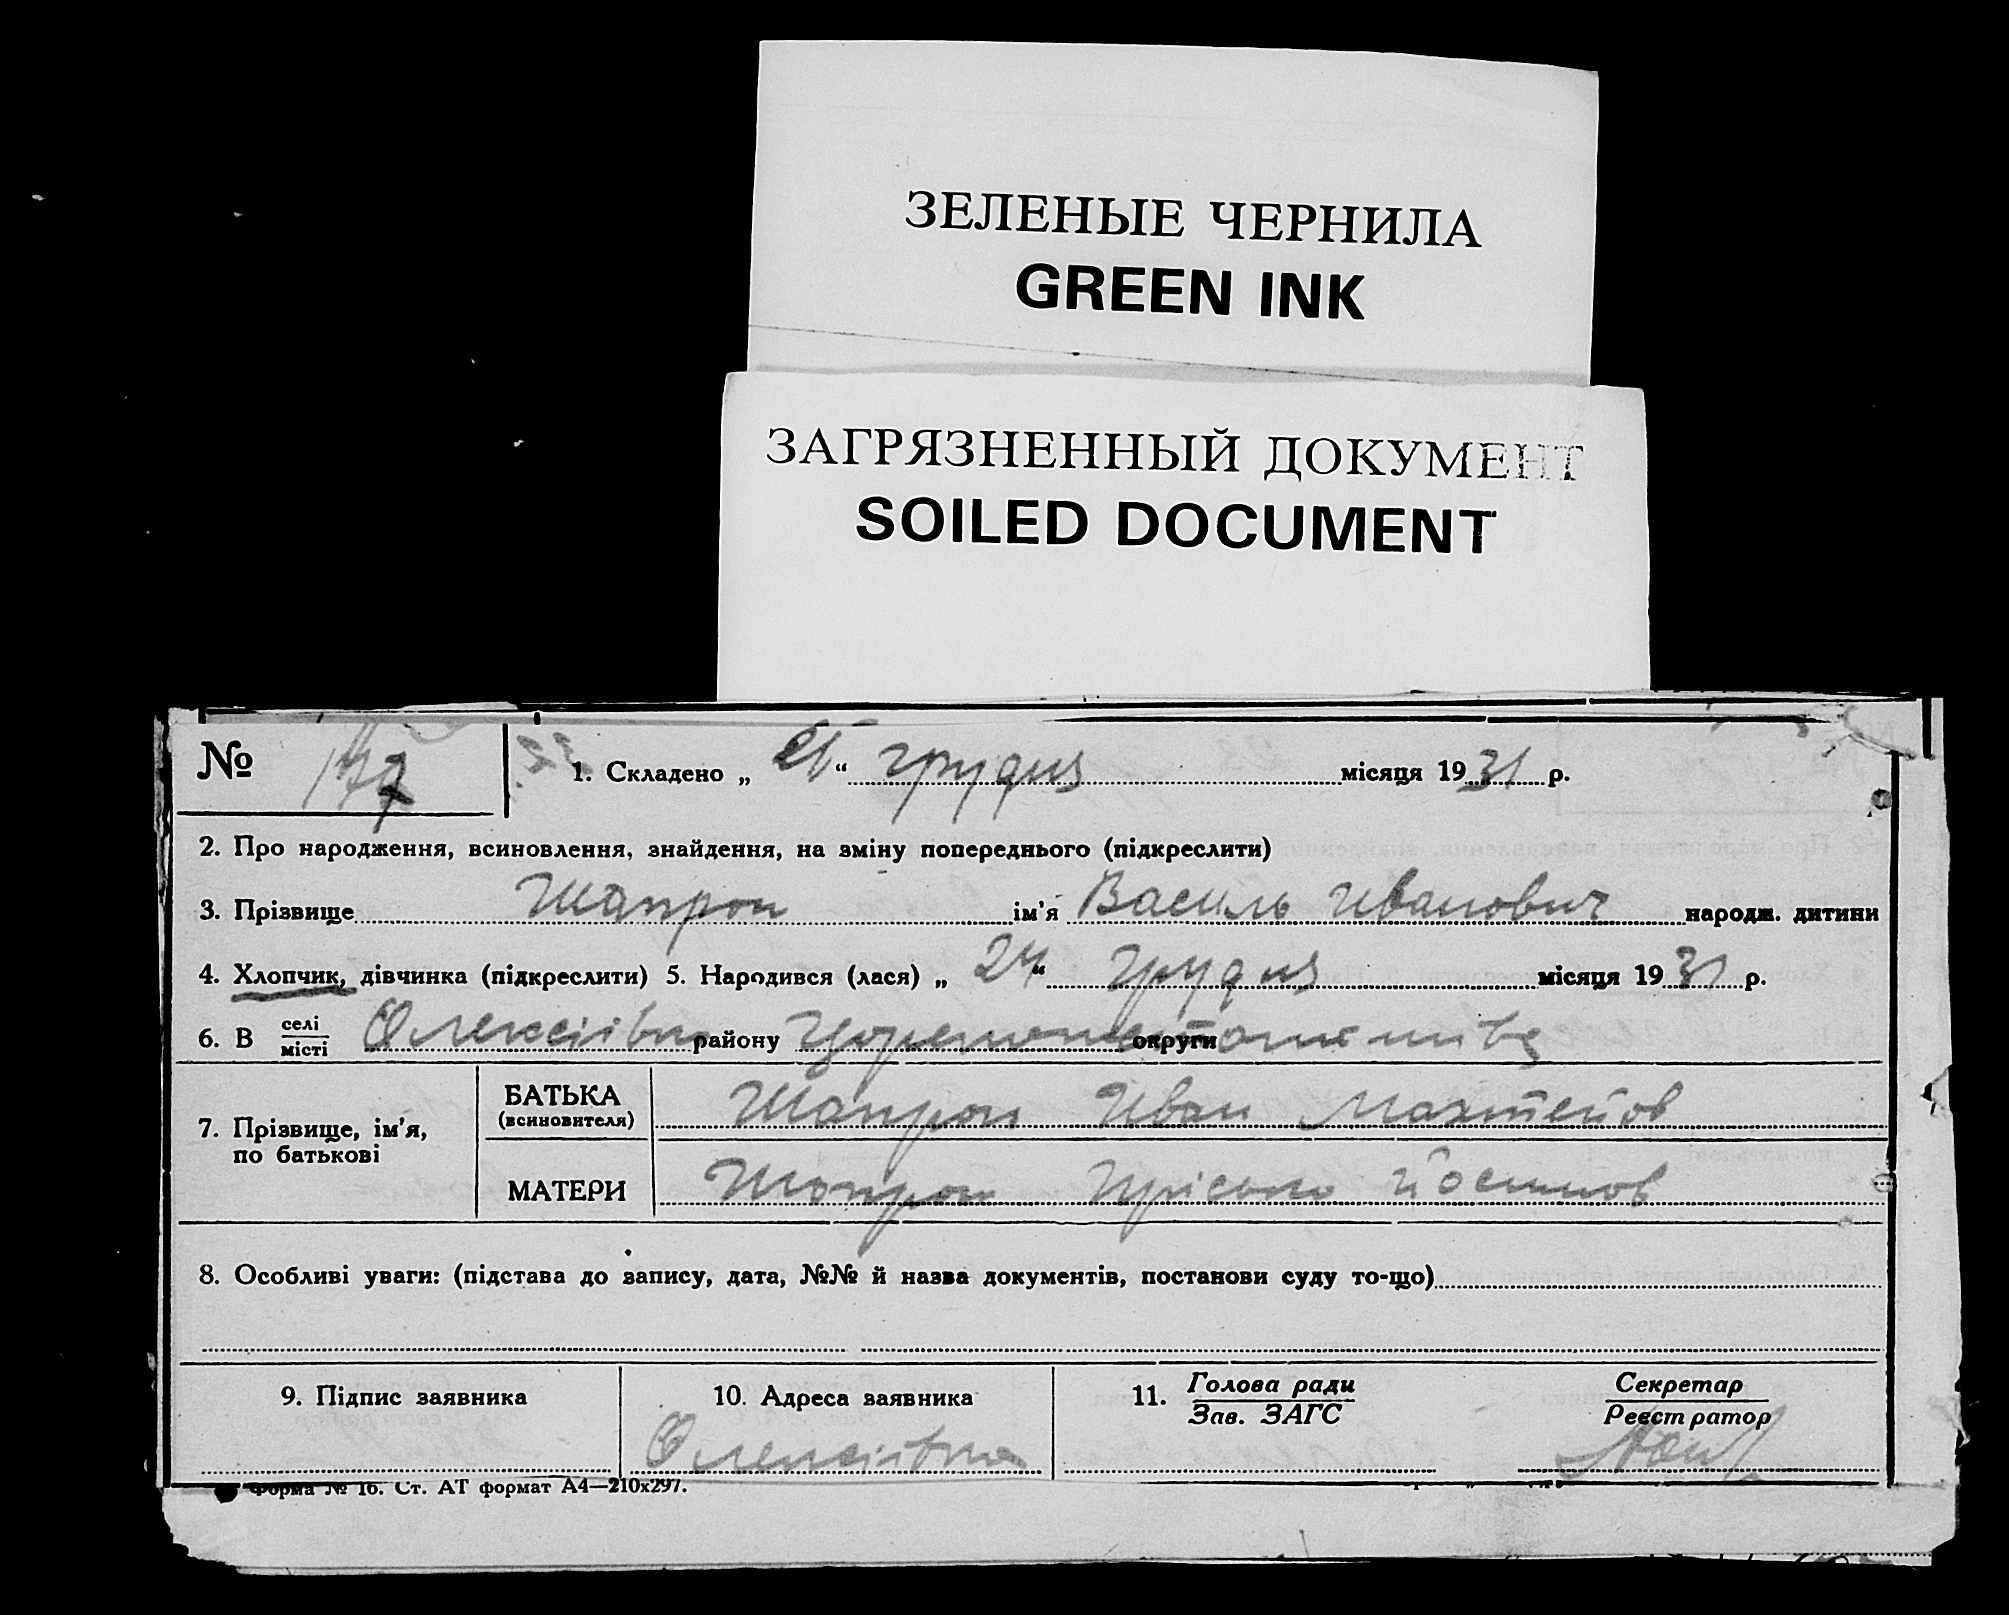 ЗЕЛЕНЫЕ ЧЕРНИЛА
GREEN INK
ЗАГРЯЗНЕННЫЙ ДОКУМЕНТ
SOILED DOCUMENT
№
1. Складено „ “ грудня місяця 1931 р.
2. Про народження, всиновлення, знайдення, на зміну попереднього (підкреслити)
3. Прізвище Шапрон ім'я Василь Иванович народж. дитини
4. Хлопчик, дівчинка (підкреслити) 5. Народився (лася) „ 24 “ Грудня місяця 1931 р.
6. В селі/місті Олексіївка району округи
7. Прізвище, ім'я, по батькові
БАТЬКА (всиновителя) Шапрон Иван
МАТЕРИ Шапрон
8. Особливі уваги: (підстава до запису, дата, №№ й назва документів, постанови суду то-що)
9. Підпис заявника
10. Адреса заявника
Олексіївка
11. Голова ради
Зав. ЗАГС
Секретар
Реєстратор
Форма № 16. Ст. АТ формат А4—210х297.